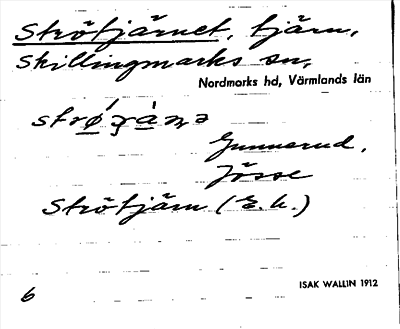 Ströfjärnet, tjärn,
Skillingmarks sn,
Nordmarks hd, Värmlands län
Gunnerud,
Jösse
Strötjärn (E.k.)
ISAK WALLIN 1912
6